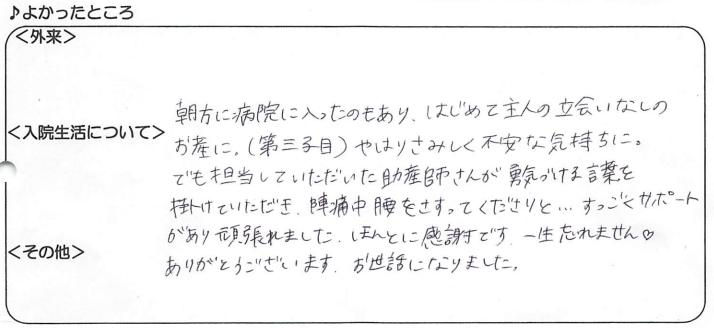 ♪よかったところ
＜外来＞
朝方に病院に入ったのもあり、はじめて主人の立会いなしの
＜入院生活について＞
お産に。(第三子目) やはりさみしく不安な気持ちに。
でも担当していただいた助産師さんが勇気づける言葉を
掛けていただき、陣痛中腰をさすってくださりと…すっごくサポート
があり頑張れました。ほんとに感謝です。一生忘れません♡
＜その他＞
ありがとうございます。お世話になりました。